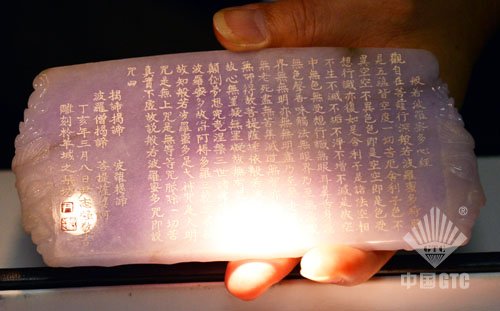 般若波羅蜜多心經
觀自在菩薩行深般若波羅蜜多時
是五蘊皆空度一切苦厄舍利子色不
異空空不異色色即是空空即是色受
想行識亦復如是舍利子是諸法空相
不生不滅不垢不淨不增不減是故空
中無色無受想行識無眼耳鼻舌身意
無色聲香味觸法無眼界
界無無明亦無無明盡乃至
無老死盡無苦集滅道無
無所得故菩提薩埵依般若
故心無罣礙無罣礙故無
顛倒夢想究竟涅槃三世
波羅蜜多故得阿耨多羅三
故知般若波羅蜜多是大神咒是
咒是無上咒是無等等咒能除一切苦
真實不虛故說般若波羅蜜多咒即說
咒曰
揭諦揭諦 波羅揭諦
波羅僧揭諦 菩提薩婆訶
丁亥年三月八日
雕刻於羊城之
GTC
®
中国GTC